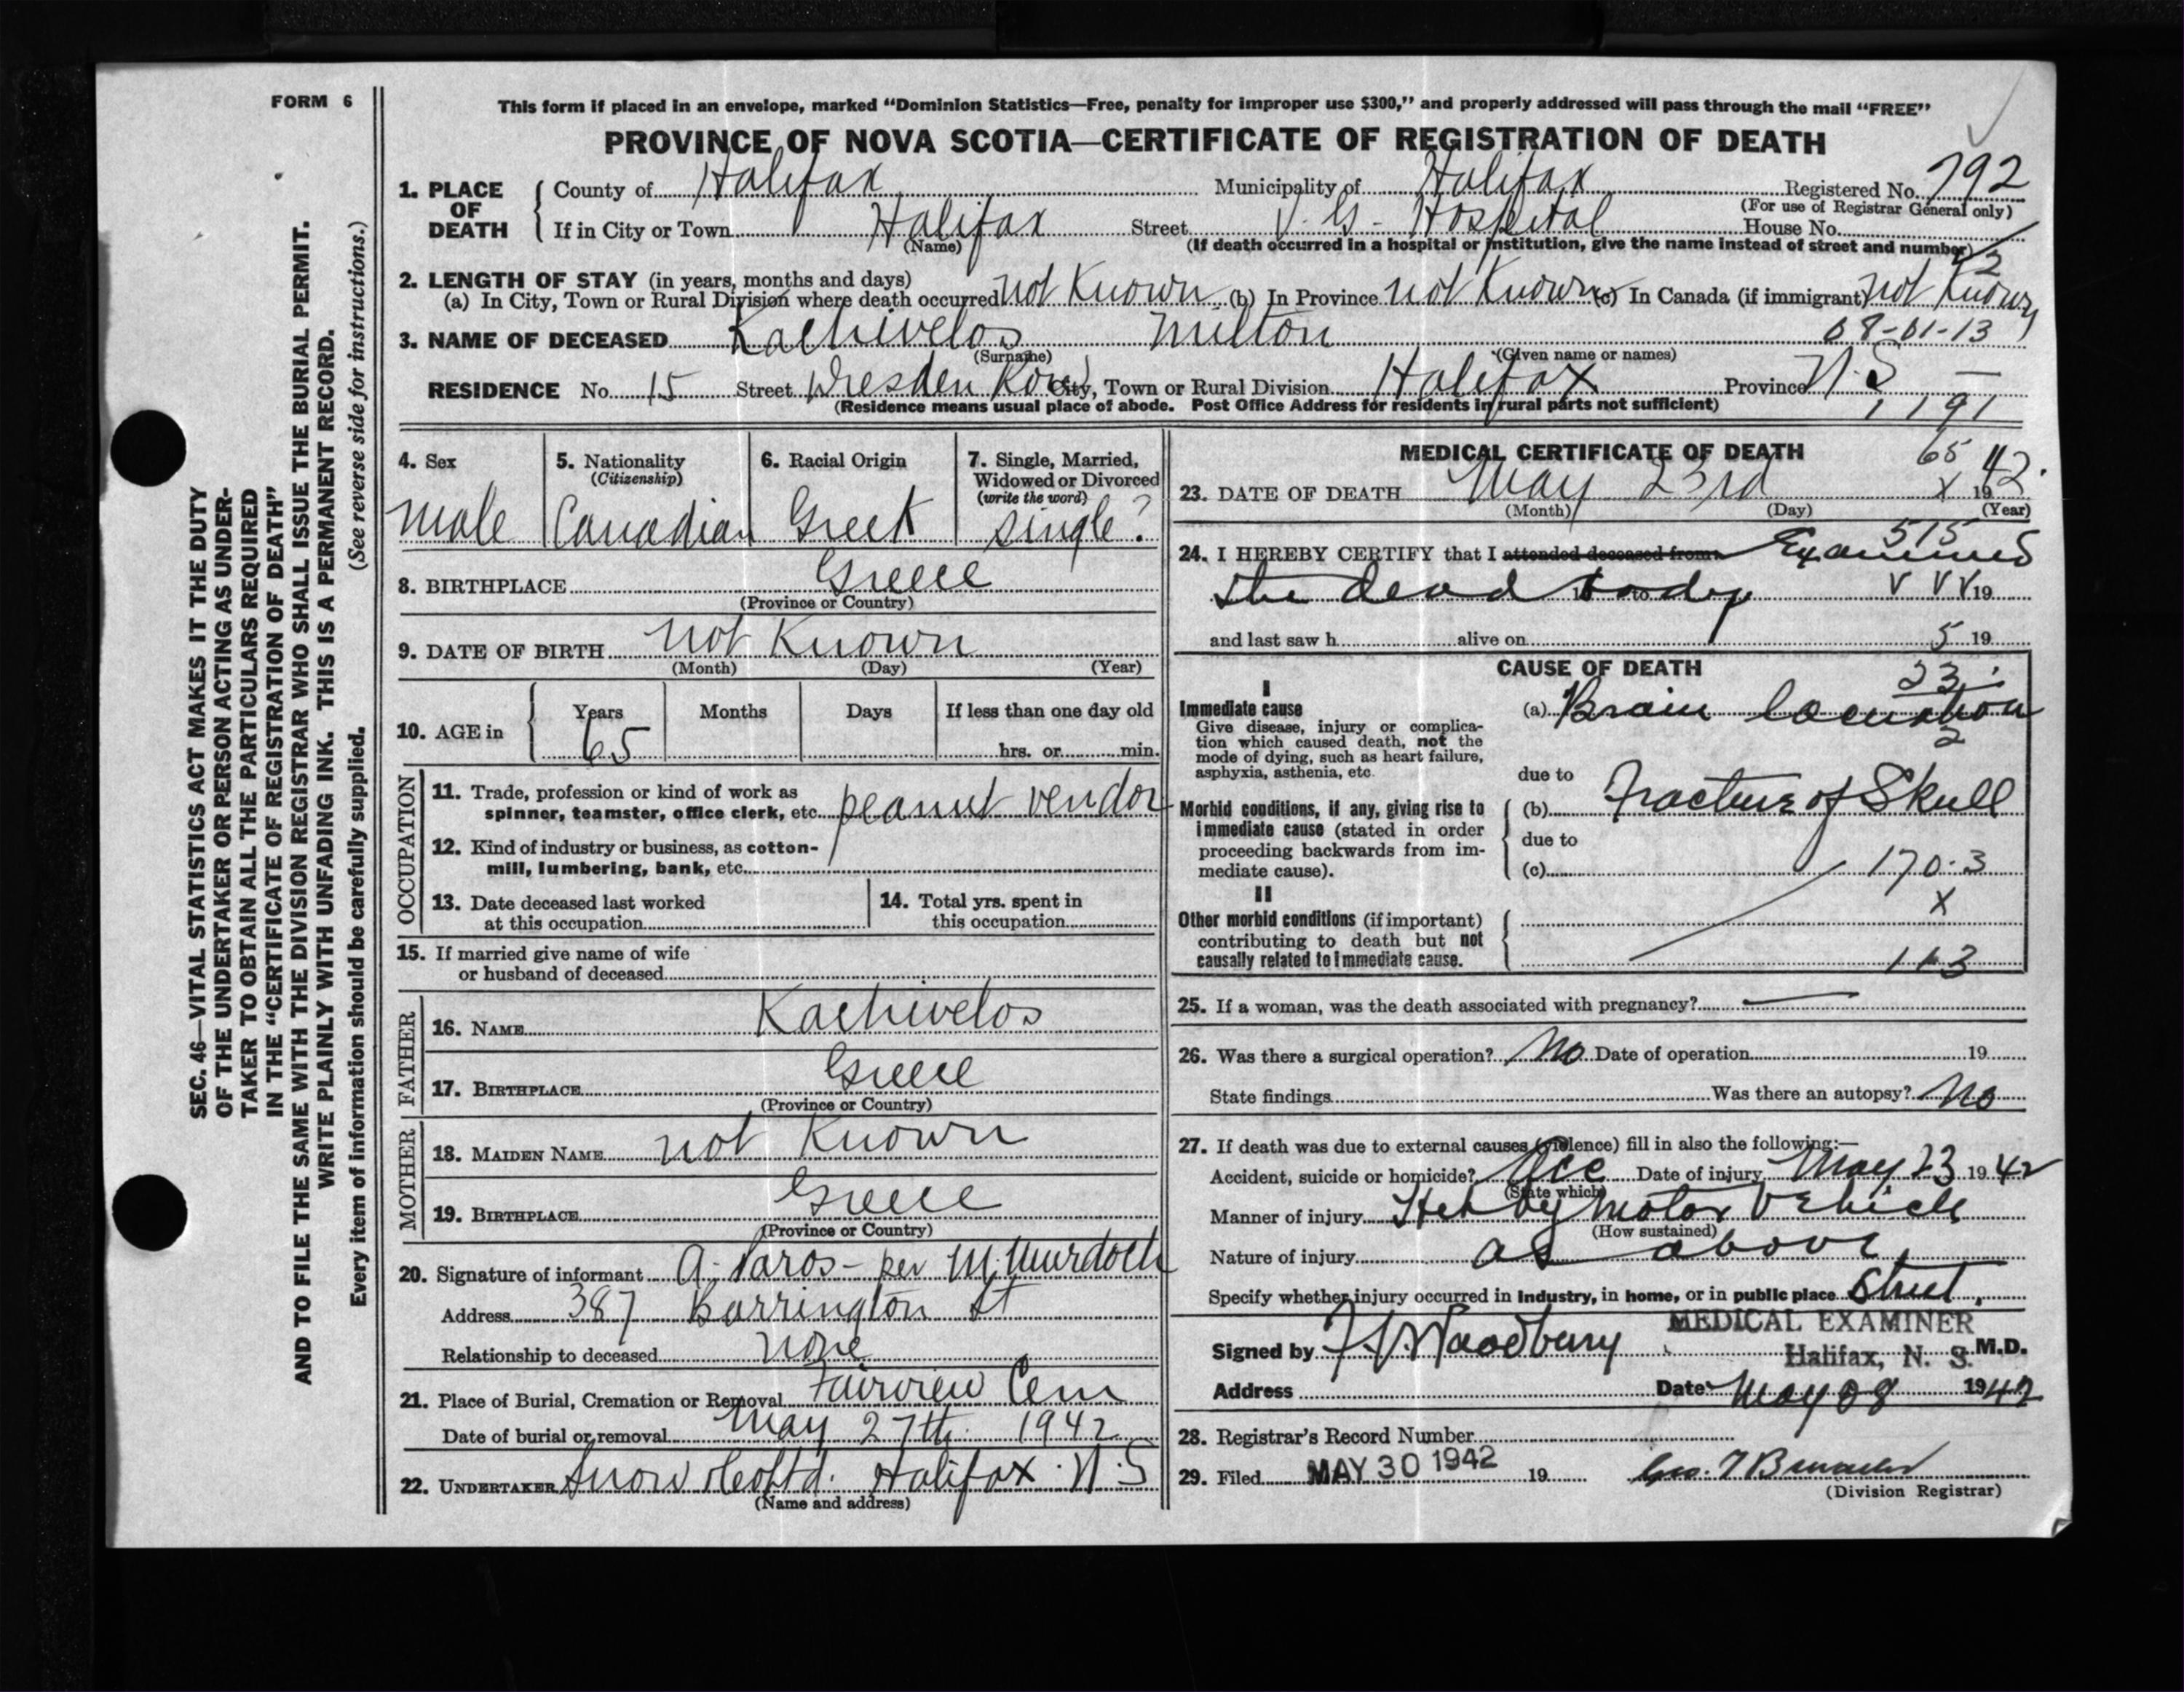 FORM 6
SEC. 46—VITAL STATISTICS ACT MAKES IT THE DUTY
OF THE UNDERTAKER OR PERSON ACTING AS UNDER-
TAKER TO OBTAIN ALL THE PARTICULARS REQUIRED
IN THE "CERTIFICATE OF REGISTRATION OF DEATH"
AND TO FILE THE SAME WITH THE DIVISION REGISTRAR WHO SHALL ISSUE THE BURIAL PERMIT.
WRITE PLAINLY WITH UNFADING INK. THIS IS A PERMANENT RECORD.
Every item of information should be carefully supplied. (See reverse side for instructions.)
This form if placed in an envelope, marked "Dominion Statistics—Free, penalty for improper use $300," and properly addressed will pass through the mail "FREE"
PROVINCE OF NOVA SCOTIA—CERTIFICATE OF REGISTRATION OF DEATH
1. PLACE OF DEATH County of Halifax Municipality of Halifax Registered No. 792
(For use of Registrar General only)
If in City or Town Halifax Street V. G. Hospital House No.
(Name) (If death occurred in a hospital or institution, give the name instead of street and number)
2
2. LENGTH OF STAY (in years, months and days)
(a) In City, Town or Rural Division where death occurred not Known (b) In Province not Known (c) In Canada (if immigrant) not Known
3. NAME OF DECEASED Kachivelos Milton 08-01-13
(Surname) (Given name or names)
RESIDENCE No. 15 Street Dresden Row City, Town or Rural Division Halifax Province N.S
(Residence means usual place of abode. Post Office Address for residents in rural parts not sufficient) 1191
4. Sex 5. Nationality (Citizenship) 6. Racial Origin 7. Single, Married, Widowed or Divorced (write the word)
male Canadian Greek single?
8. BIRTHPLACE Greece
(Province or Country)
9. DATE OF BIRTH not Known
(Month) (Day) (Year)
10. AGE in Years Months Days If less than one day old
65 hrs. or min.
OCCUPATION
11. Trade, profession or kind of work as
spinner, teamster, office clerk, etc. peanut vendor
12. Kind of industry or business, as cotton-
mill, lumbering, bank, etc.
13. Date deceased last worked at this occupation
14. Total yrs. spent in this occupation
15. If married give name of wife
or husband of deceased
FATHER
16. NAME Kachivelos
17. BIRTHPLACE Greece
(Province or Country)
MOTHER
18. MAIDEN NAME not Known
19. BIRTHPLACE Greece
(Province or Country)
20. Signature of informant A. Paros - per M. Murdoch
Address 387 Barrington St
Relationship to deceased None
21. Place of Burial, Cremation or Removal Fairview Cem
Date of burial or removal May 27th 1942
22. UNDERTAKER Snow & Co Ltd. Halifax. N.S
(Name and address)
MEDICAL CERTIFICATE OF DEATH
65
23. DATE OF DEATH May 23rd X 1942.
(Month) (Day) (Year)
515
24. I HEREBY CERTIFY that I attended deceased from Examined
the dead body to V V V 19
and last saw h alive on 5 19
CAUSE OF DEATH
23
I
Immediate cause
Give disease, injury or complica-
tion which caused death, not the
mode of dying, such as heart failure,
asphyxia, asthenia, etc.
(a) Brain laceration
2
due to
Morbid conditions, if any, giving rise to
immediate cause (stated in order
proceeding backwards from im-
mediate cause).
(b) Fracture of Skull
due to
(c) 170.3
X
II
Other morbid conditions (if important)
contributing to death but not
causally related to immediate cause.
113
25. If a woman, was the death associated with pregnancy?
26. Was there a surgical operation? No Date of operation 19
State findings Was there an autopsy? No
27. If death was due to external causes (violence) fill in also the following:—
Accident, suicide or homicide? Acc Date of injury May 23 1942
(State which)
Manner of injury Hit by Motor Vehicle
(How sustained)
Nature of injury as above.
Specify whether injury occurred in industry, in home, or in public place Street.
MEDICAL EXAMINER
Signed by Woodbury Halifax, N. S. M.D.
Address Date May 28 1942
28. Registrar's Record Number
29. Filed MAY 30 1942 19
(Division Registrar)